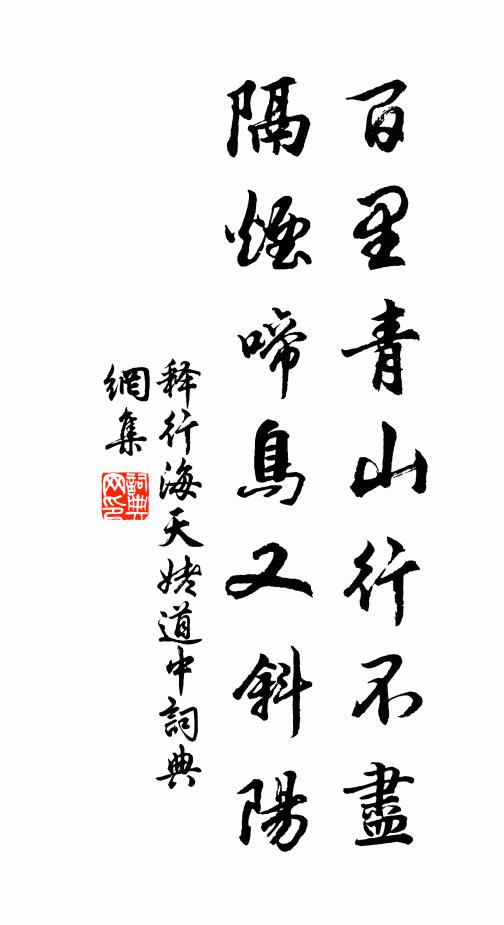 百里青山行不盡
隔煙啼鳥又斜陽
释行海天姥道中詞典
網集
詞典
网印